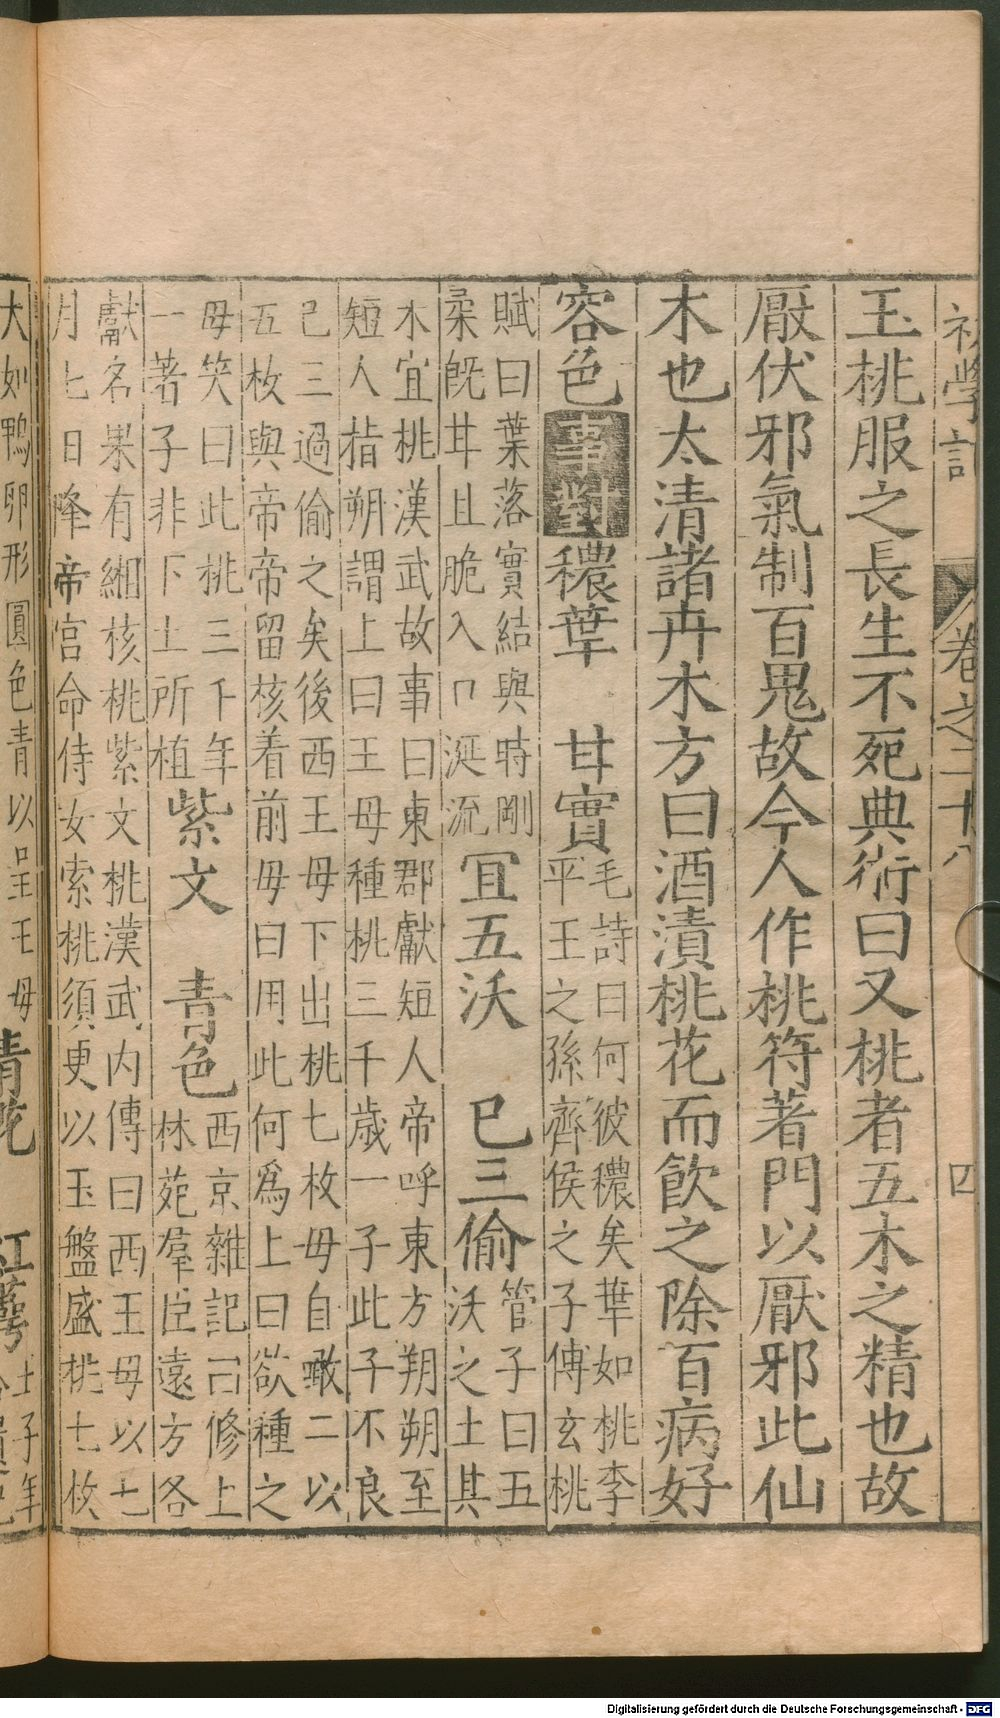 初學記 卷之二十八 四
玉桃服之長生不死典術曰又桃者五木之精也故
厭伏邪氣制百鬼故今人作桃符著門以厭邪此仙
木也太清諸卉木方曰酒漬桃花而飲之除百病好
容色 事對 穠華 甘實
毛詩曰何彼穠矣華如桃李
平王之孫齊侯之子傳玄桃
賦曰葉落實結與時剛
柔既甘且脆入口涎流
宜五沃 已三偷
管子曰五
沃之土其
木宜桃漢武故事曰東郡獻短人帝呼東方朔朔至
短人指朔謂上曰王母種桃三千歲一子此子不良
已三過偷之矣後西王母下出桃七枚母自噉二以
五枚與帝帝留核着前母曰用此何爲上曰欲種之
母笑曰此桃三千年
一著子非下土所植
紫文 青色
西京雜記曰修上
林苑羣臣遠方各
獻名果有緗核桃紫文桃漢武内傳曰西王母以七
月七日降帝宮命侍女索桃須更以玉盤盛桃七枚
大如鴨卵形圓色青以呈王母
青花 紅蕚
子年
Digitalisierung gefördert durch die Deutsche Forschungsgemeinschaft - DFG